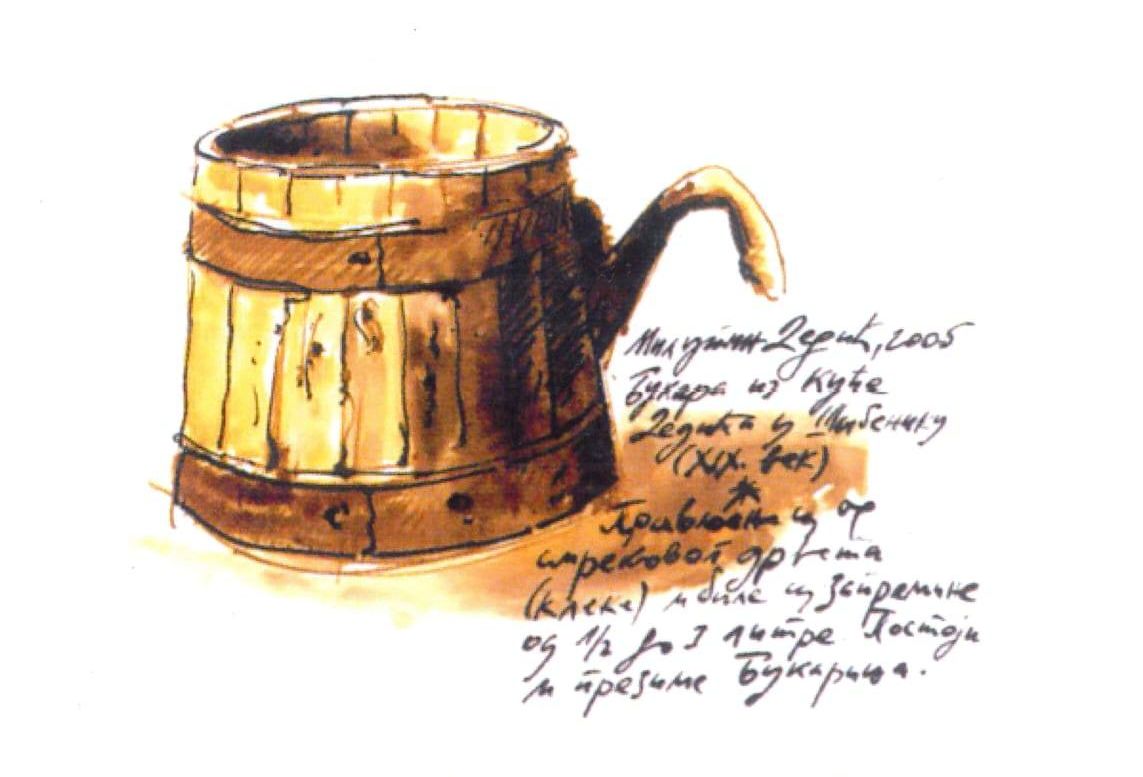 Милутин Дедић, 2005
Букара из куће
Дедића у Шибенику
(XIX. век)
*
су од
смрековог дрвета
(клека) и биле су запремине
од 1/2 до 3 литре. Постоји
и презиме Букарица.